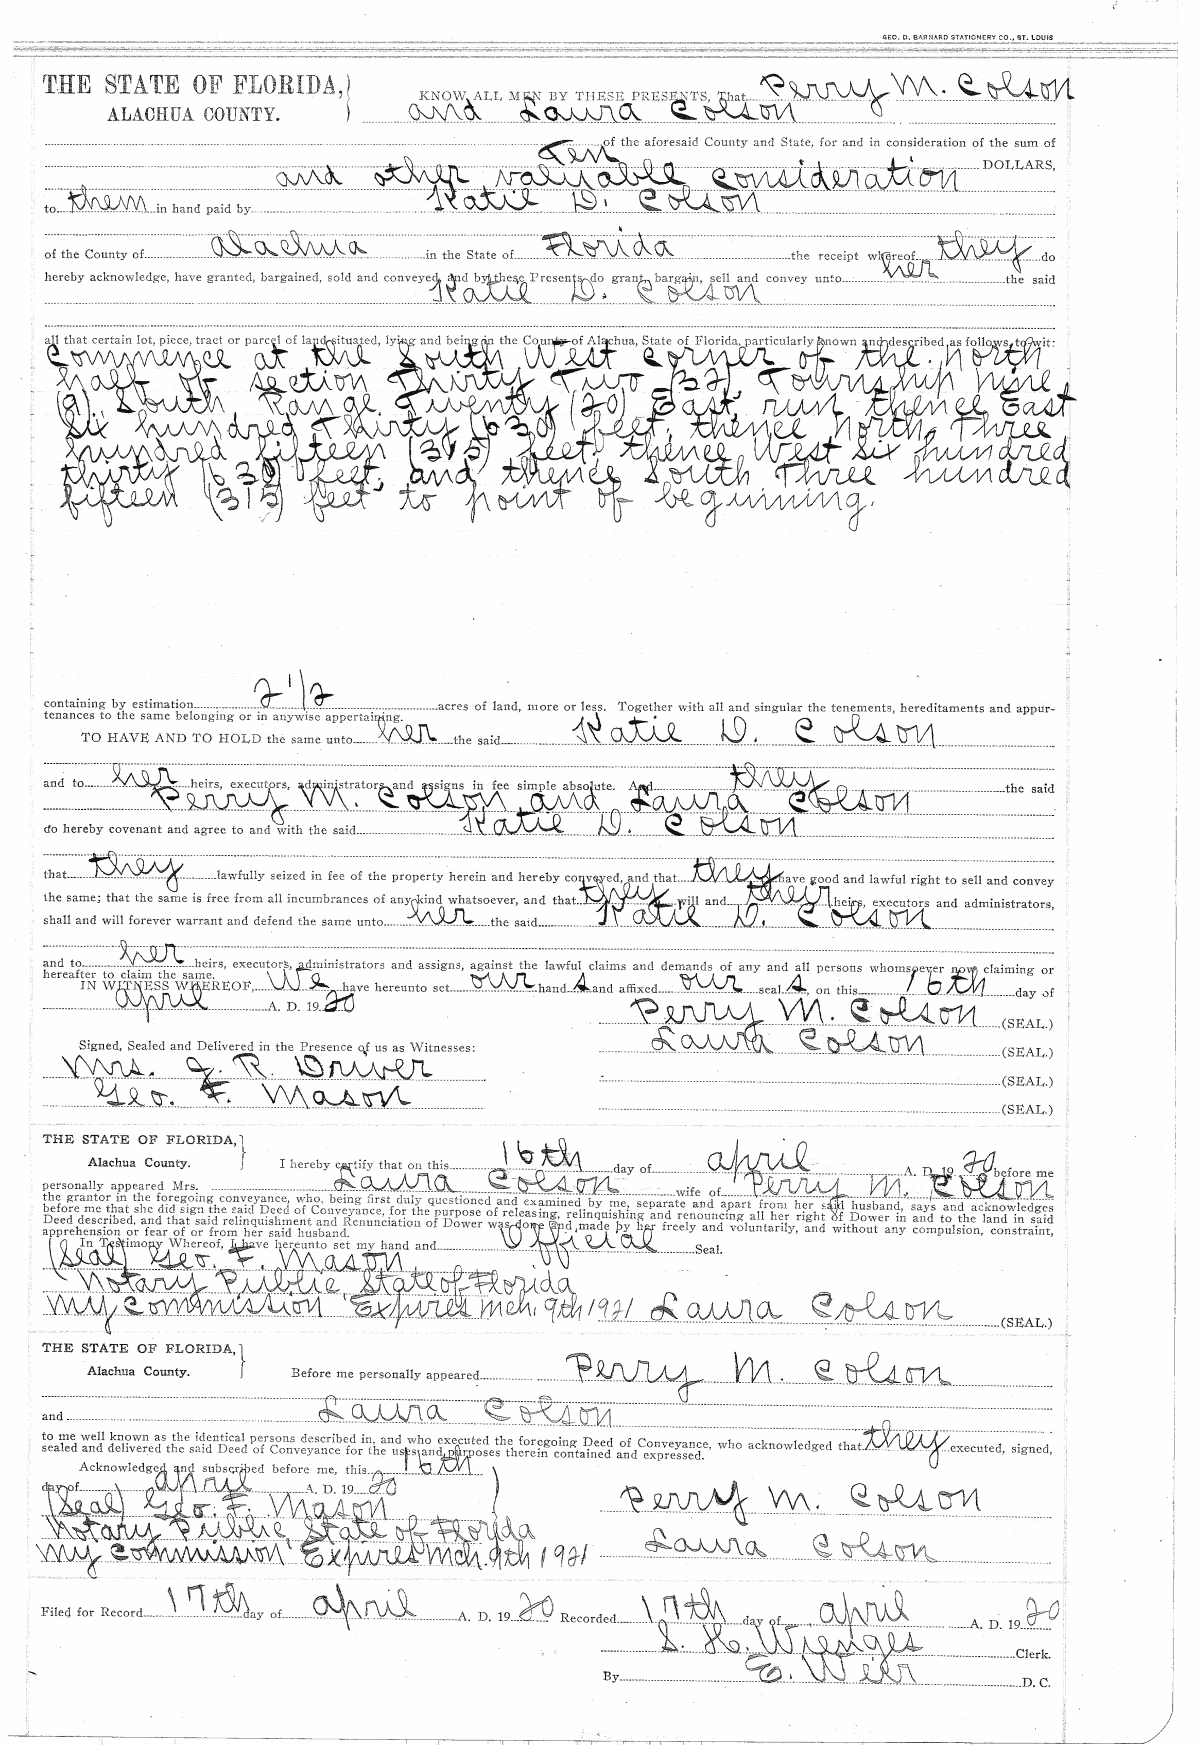 GEO. D. BARNARD STATIONERY CO., ST. LOUIS
THE STATE OF FLORIDA,
ALACHUA COUNTY.
KNOW ALL MEN BY THESE PRESENTS, That Perry M. Colson
and Laura Colson
of the aforesaid County and State, for and in consideration of the sum of
Ten
and other valuable consideration DOLLARS,
to them in hand paid by Katie D. Colson
of the County of Alachua in the State of Florida the receipt whereof they do
hereby acknowledge, have granted, bargained, sold and conveyed, and by these Presents do grant, bargain, sell and convey unto her the said
Katie D. Colson
all that certain lot, piece, tract or parcel of land situated, lying and being in the County of Alachua, State of Florida, particularly known and described as follows, to wit:
Commence at the South West corner of the north
half of section Thirty Two (32), Township nine
(9), South, Range Twenty (20) East, run thence East
six hundred Thirty (630) feet, thence North Three
hundred fifteen (315) feet, thence West six hundred
thirty (630) feet, and thence South Three hundred
fifteen (315) feet to point of beginning.
containing by estimation 2 1/2 acres of land, more or less. Together with all and singular the tenements, hereditaments and appur-
tenances to the same belonging or in anywise appertaining.
TO HAVE AND TO HOLD the same unto her the said Katie D. Colson
and to her heirs, executors, administrators and assigns in fee simple absolute. And they the said
Perry M. Colson and Laura Colson
do hereby covenant and agree to and with the said Katie D. Colson
that they lawfully seized in fee of the property herein and hereby conveyed, and that they have good and lawful right to sell and convey
the same; that the same is free from all incumbrances of any kind whatsoever, and that they will and their heirs, executors and administrators,
shall and will forever warrant and defend the same unto her the said Katie D. Colson
and to her heirs, executors, administrators and assigns, against the lawful claims and demands of any and all persons whomsoever now claiming or
hereafter to claim the same.
IN WITNESS WHEREOF, We have hereunto set our hand s and affixed our seal s, on this 16th day of
april A. D. 1920
Perry M. Colson (SEAL.)
Signed, Sealed and Delivered in the Presence of us as Witnesses:
Laura Colson (SEAL.)
Mrs. J. R. Driver (SEAL.)
Geo. F. Mason (SEAL.)
THE STATE OF FLORIDA,
Alachua County.
I hereby certify that on this 16th day of april A. D. 19 20 before me
personally appeared Mrs. Laura Colson wife of Perry M. Colson
the grantor in the foregoing conveyance, who, being first duly questioned and examined by me, separate and apart from her said husband, says and acknowledges
before me that she did sign the said Deed of Conveyance, for the purpose of releasing, relinquishing and renouncing all her right of Dower in and to the land in said
Deed described, and that said relinquishment and Renunciation of Dower was done and made by her freely and voluntarily, and without any compulsion, constraint,
apprehension or fear of or from her said husband.
In Testimony Whereof, I have hereunto set my hand and Official Seal.
(Seal) Geo. F. Mason
Notary Public, State of Florida
My Commission Expires Mch. 9th 1921 Laura Colson (SEAL.)
THE STATE OF FLORIDA,
Alachua County.
Before me personally appeared Perry M. Colson
and Laura Colson
to me well known as the identical persons described in, and who executed the foregoing Deed of Conveyance, who acknowledged that they executed, signed,
sealed and delivered the said Deed of Conveyance for the uses and purposes therein contained and expressed.
Acknowledged and subscribed before me, this 16th
day of april A. D. 19 20
(Seal) Geo. F. Mason
Perry M. Colson
Notary Public State of Florida
My Commission Expires Mch. 9th 1921
Laura Colson
Filed for Record 17th day of april A. D. 19 20 Recorded 17th day of april A. D. 19 20
S. H. Wienges Clerk.
By E. Weir D. C.